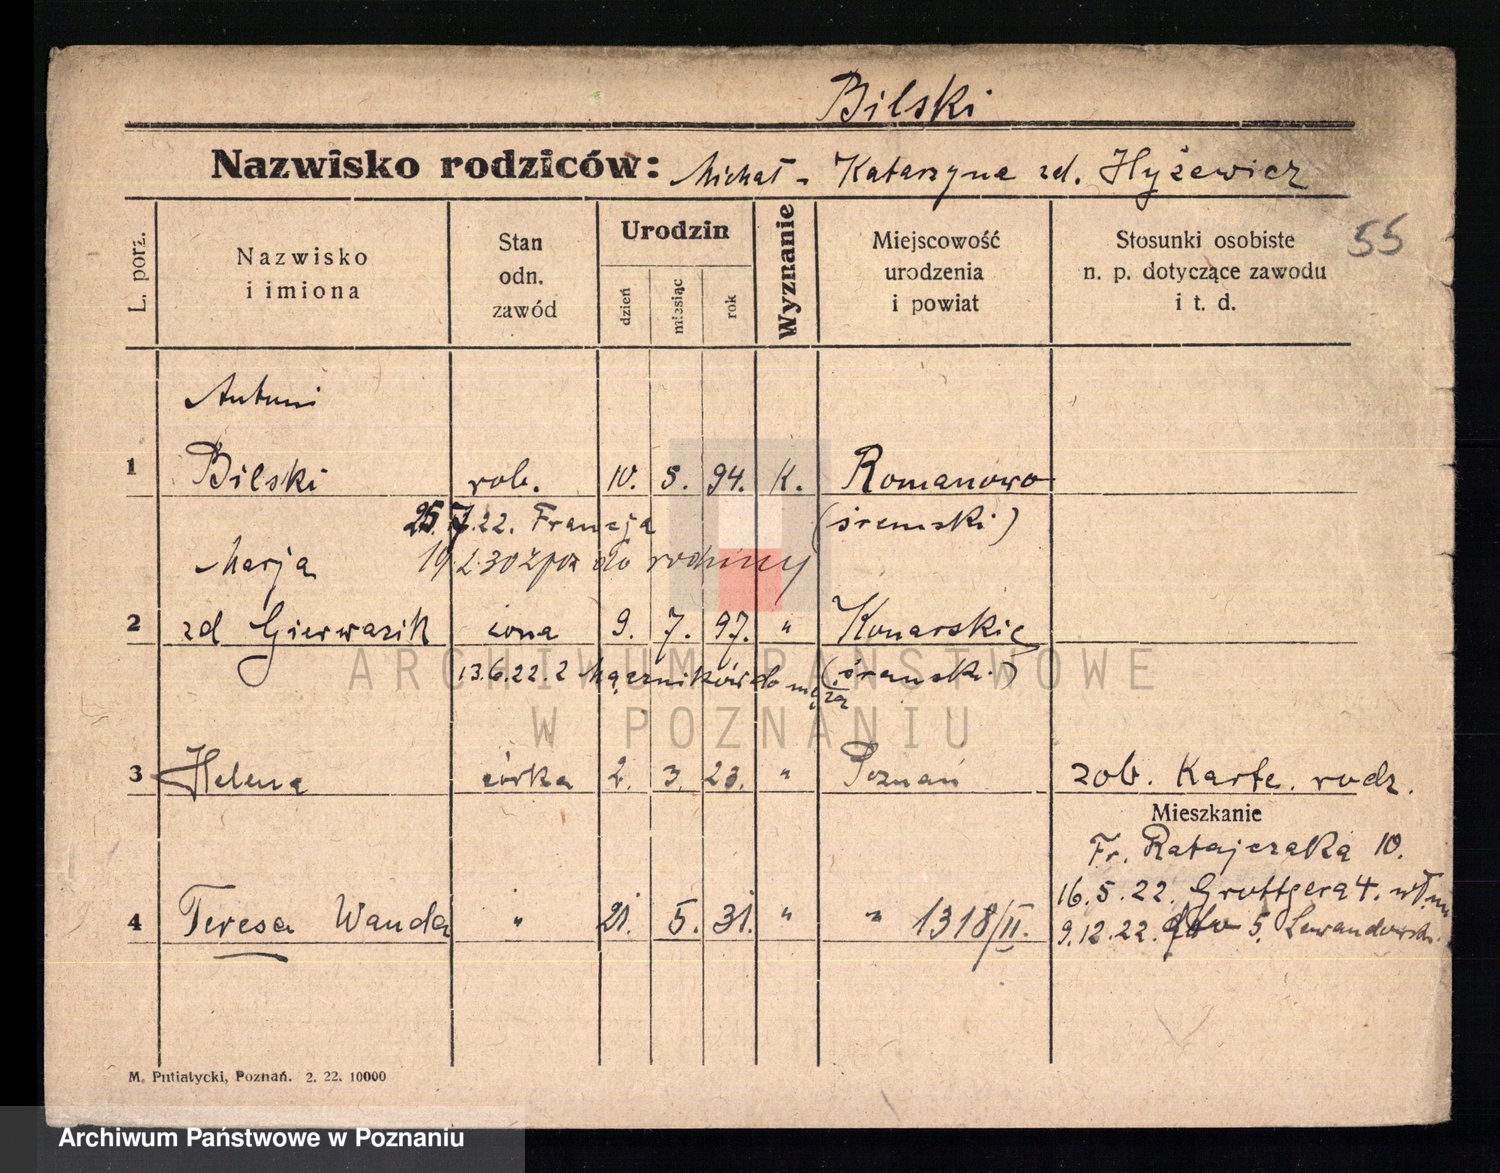 Bilski
Nazwisko rodziców: Michał - Katarzyna zd. Hyżewicz
L. porz.
Nazwisko i imiona
Stan odn. zawód
Urodzin
dzień
miesiąc
rok
Wyznanie
Miejscowość urodzenia i powiat
Stosunki osobiste n. p. dotyczące zawodu i t. d.
55
Antoni
1 Bilski rob. 10. 5. 94. K. Romanowo
25.7.22. Francja (śremski)
Marja 19 2.30 do rodziny
2 zd Gierwazik żona 9. 7. 97. " Konarskie
13.6.22. z Mączników do męża (śremski)
3 Helena córka 2. 3. 23. " Poznań zob. Karte. rodz.
Mieszkanie
Fr. Ratajczaka 10.
16.5.22. Grottgera 4.
4 Teresa Wanda " 21. 5. 31. " " 1318/II.
9.12.22. 5. Lewandowski
M. Putiatycki, Poznań. 2. 22. 10000
ARCHIWUM PAŃSTWOWE
W POZNANIU
Archiwum Państwowe w Poznaniu